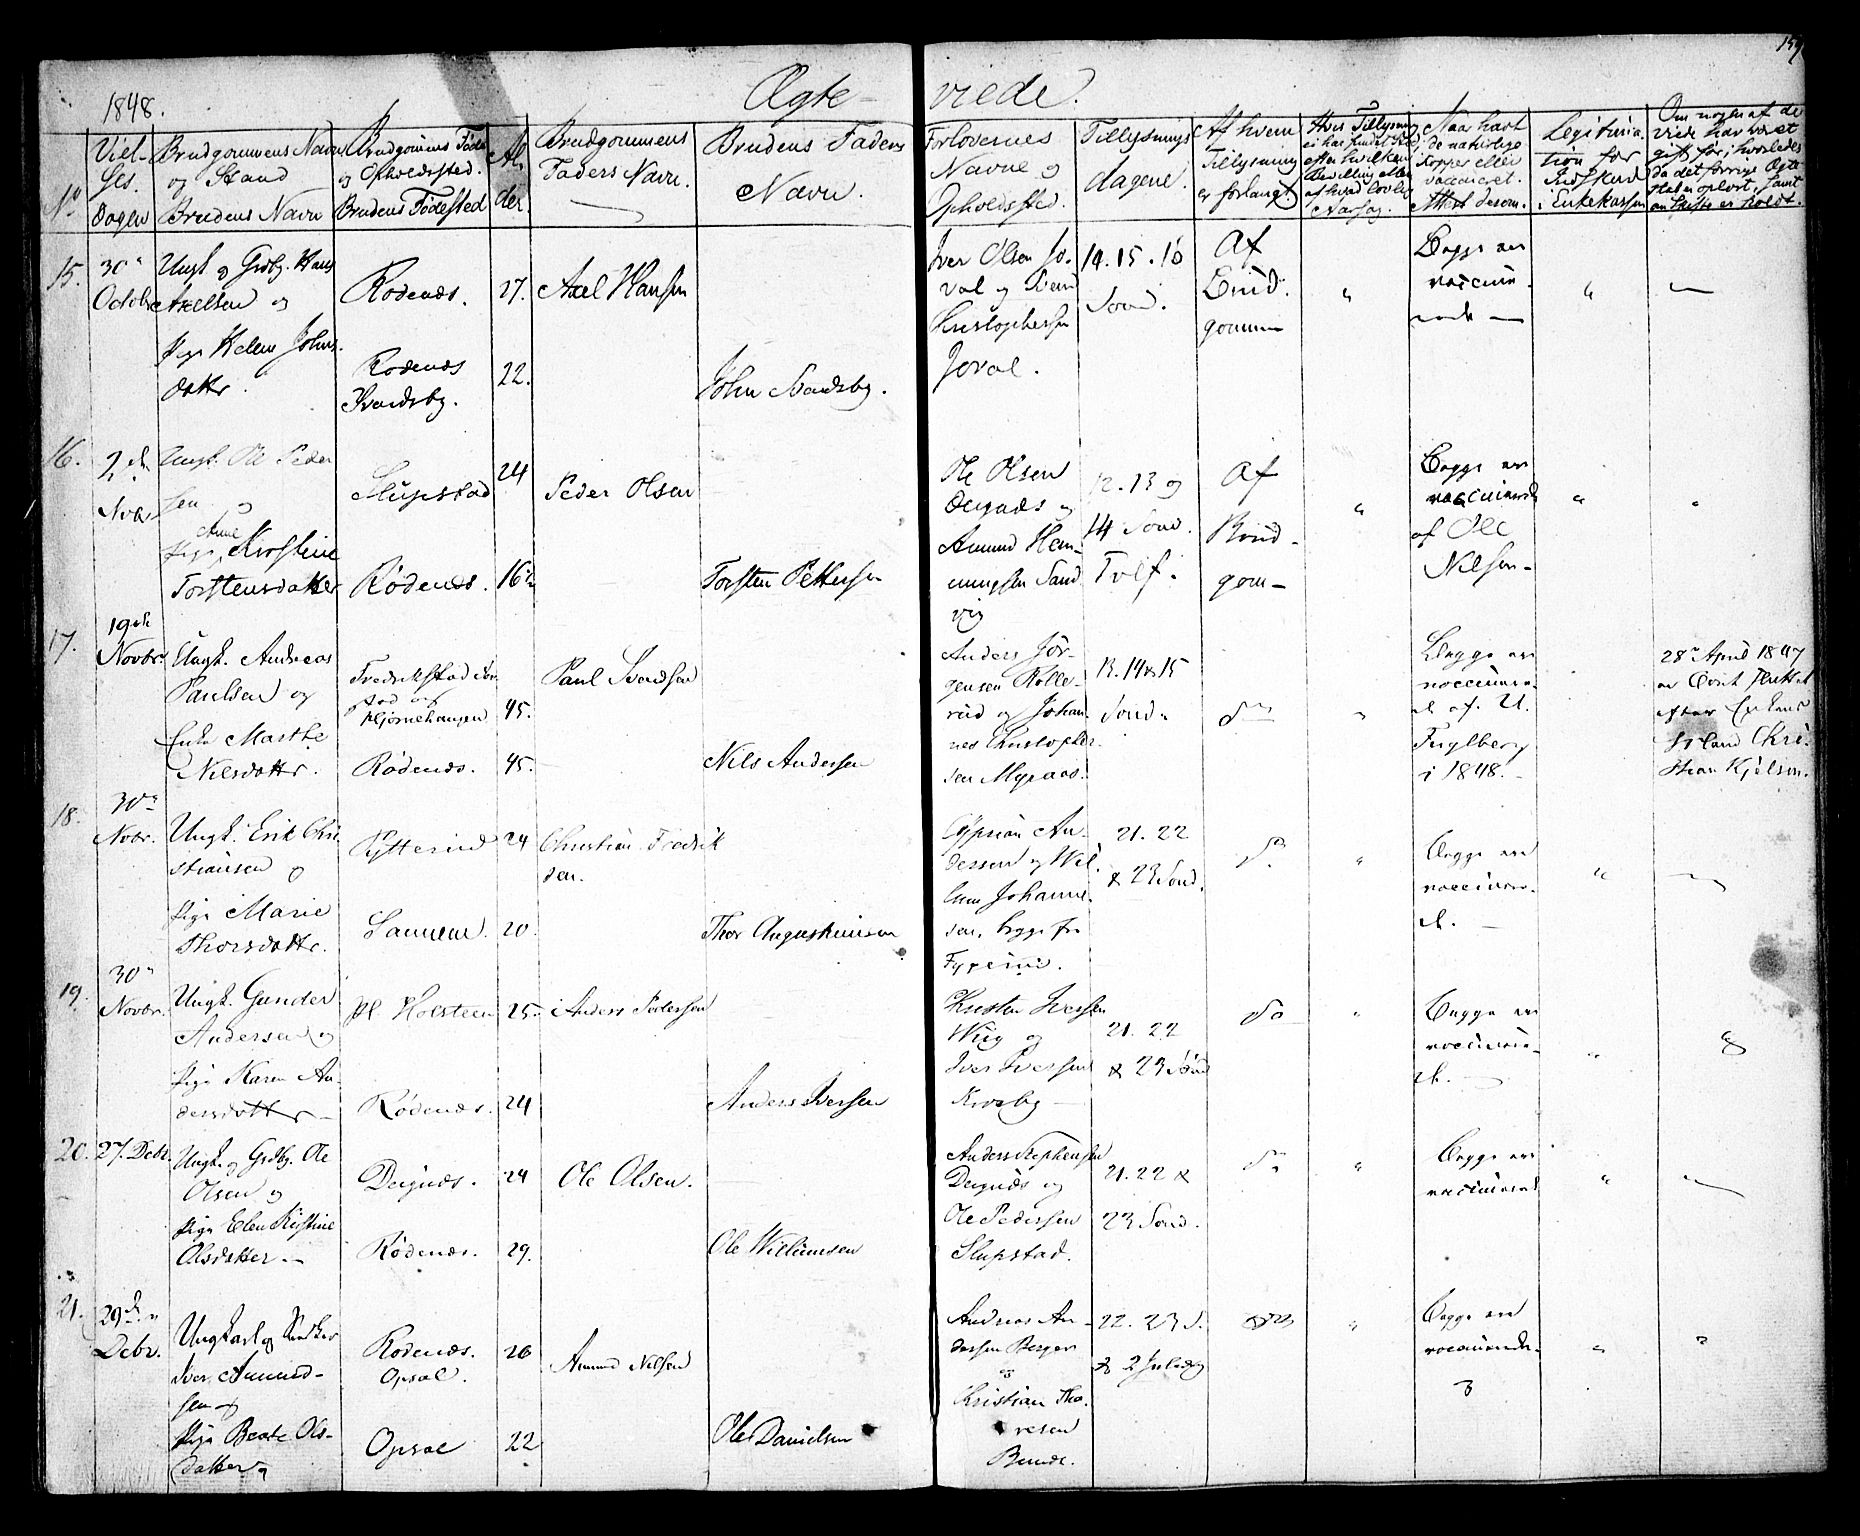 1848.
Ægte-
viede.
No
Viel-
ses
Dagen
Brudgommens Navn
og Stand
Brudens Navn
Brudgomens Føde
og Opholdssted.
Brudens Fødested
Al
der.
Brudgommens
Faders Navn.
Brudens Faders
Navn.
Forlovernes
Navne og
Opholdssted.
Tillysnings
dagene.
Af hvem
Tillysning
er forlangt.
Hvis Tillysning
ei har fundet Sted,
efter hvilken
Bevilling eller
af hvad lovlig
Aarsag.
Naar havt
de naturlige
Kopper eller
vaccineret.
Attest desom.
Legitima
tion for
Indskud
i Enkekassen
Om nogen af de
viede har været
gift før; hvorledes
da det forrige Ægte
skab er opløst, samt
om Skifte er holdt.
15.
30
Octobr
Ungk og Grdbg. Hans
Axelsen og
Pige Helene Johns
datter.
Rødenæs.
Rødenæs
Svendsby.
27.
22.
Axel Hansen
John Svendsby.
Iver Olsen Jo-
val og Svend
Christophersen
Joval.
14. 15. 16
Sønd.
Af
Brud
gommen
"
Begge ere
vaccine-
rede —
"
—
16.
2den
Novbr
Ungk. Ole Peder
sen og
Pige Anne Kirstine
Torstensdatter
Slupstad
Rødenæs.
24
16½
Peder Olsen
Torsten Pettersen
Ole Olsen
Deignæs og
Amund Hem-
mingsen Sand
vig
12. 13 og
14 Sønd.
Tref.
Af
Brud-
gom-
"
Begge ere
vaccinerede
af Ole
Nilsen-
"
"
17.
19de
Novbr
Ungk. Andreas
Paulsen og
Enke Marthe
Nilsdatter.
Rødenæs.
45.
45.
Paul Svendsen
Nils Andersen
Anders Jør-
gensen Kolle-
rud og Johan-
nes Christopher
sen Myraas.
13. 14 & 15
Sønd.
do
"
Begge ere
vaccinere-
de af U.
Fuglberg
i 1848.
28de April 1847
er holdt Skifte
efter Enkens
Mand Chri-
stian Kjelsen.
18.
30te
Novbr.
Ungk. Erik Chri
stiansen og
Pige Marie
Thorsdatter.
24
20.
Christian Fredrik
sen.
Thor Augustinusen
Cyprian An-
dersen og Wil
helm Johanne-
sen, begge fra
21. 22
& 23 Sønd.
do
"
Begge ere
vaccinere-
de. —
"
—
19.
30
Novbr.
Ungk. Gunder
Andersen og
Pige Karen An-
dersdatter —
Pl. Holsteen
Rødenæs.
25
24
Anders Pedersen
Anders Iversen
Kristen Iversen
Wiig og
Iver Iversen
Kroby —
21. 22
& 23 Sønd
do
"
Begge ere
vaccinere-
de. —
"
20.
27. Debr.
Ungk. og Grdbg. Ole
Olsen og
Pige Elen Kristine
Olsdatter. —
Deignæs.
Rødenæs.
24
29.
Ole Olsen.
Ole Willumsen
Anders Stephensen
Deignæs og
Ole Pedersen
Slupstad.
21. 22 &
23 Sønd.
do
"
Begge ere
vaccinerede
"
—
21.
29de
Debr.
Ungkarl og
Iver Amund-
sen og
Pige Beate Ols-
datter
Rødenæs.
Opsal.
Opsal
26
22
Amund Nilsen
Ole Danielsen
Andreas An-
dersen Berger
og
Christian Tho-
resen
22. 23 S.
& 2 Juledag
do
"
Begge ere
vaccinerede.
"
"